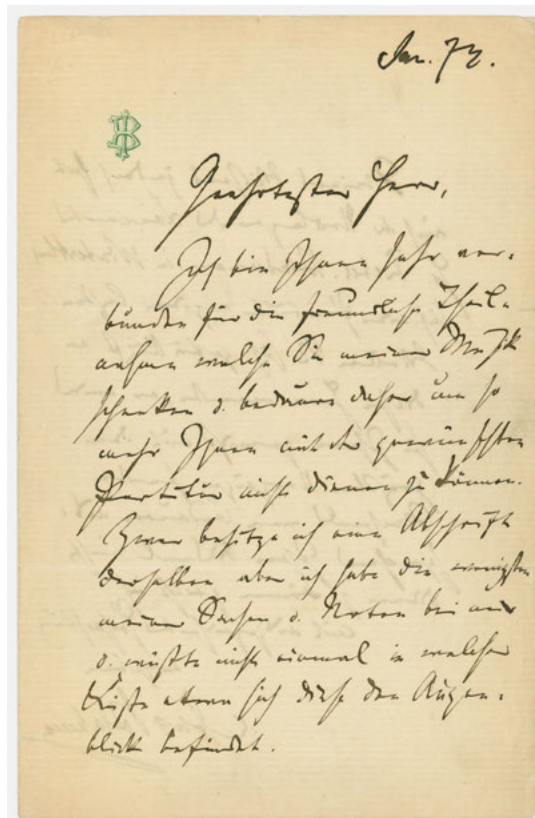 Jan. 73.
JB
Geehrtester Herr,
Ich bin Ihnen sehr ver-
bunden für die freundliche Theil-
nahme welche Sie meiner Musik
schenken u. bedaure daher um so
mehr Ihnen mit der gewünschten
Partitur nicht dienen zu können.
Zwar besitze ich eine Abschrift
derselben aber ich habe die wenigsten
meiner Sachen u. Noten bei mir
u. wüßte nicht einmal in welcher
Kiste etwa sich diese den Augen-
blick befindet.